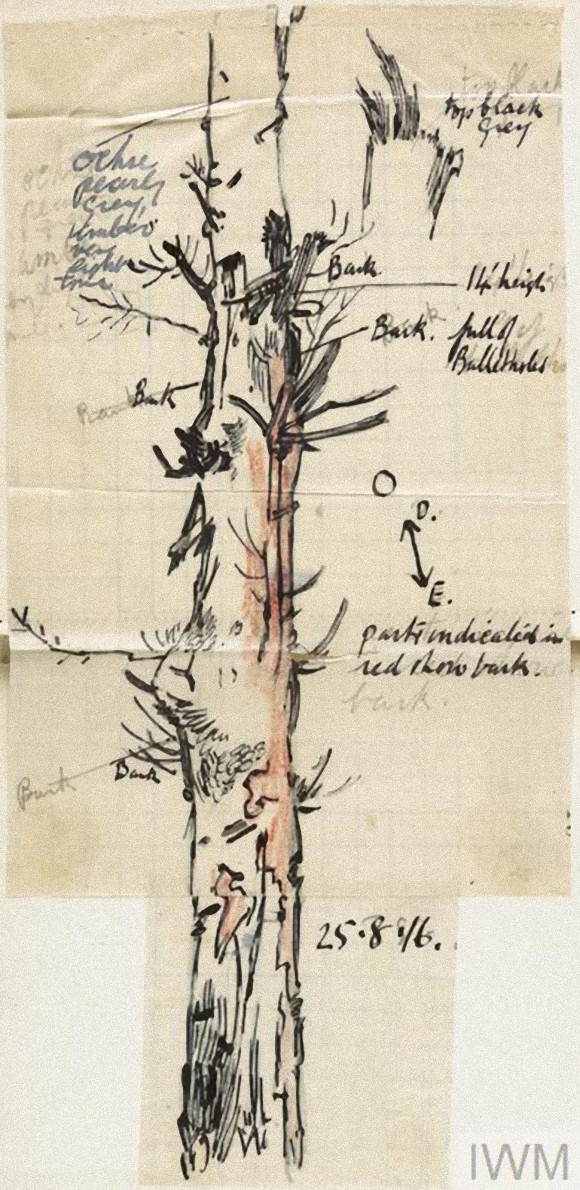 top black
Grey
Ochre
pearly
Grey,
Umber
very
light
tone
Bark.
14' high
Bark. full of
Bulletholes
Bark
O
D.
E.
parts indicated in
red show bark.
bark.
Bark
Bark
25.8.16.
IWM